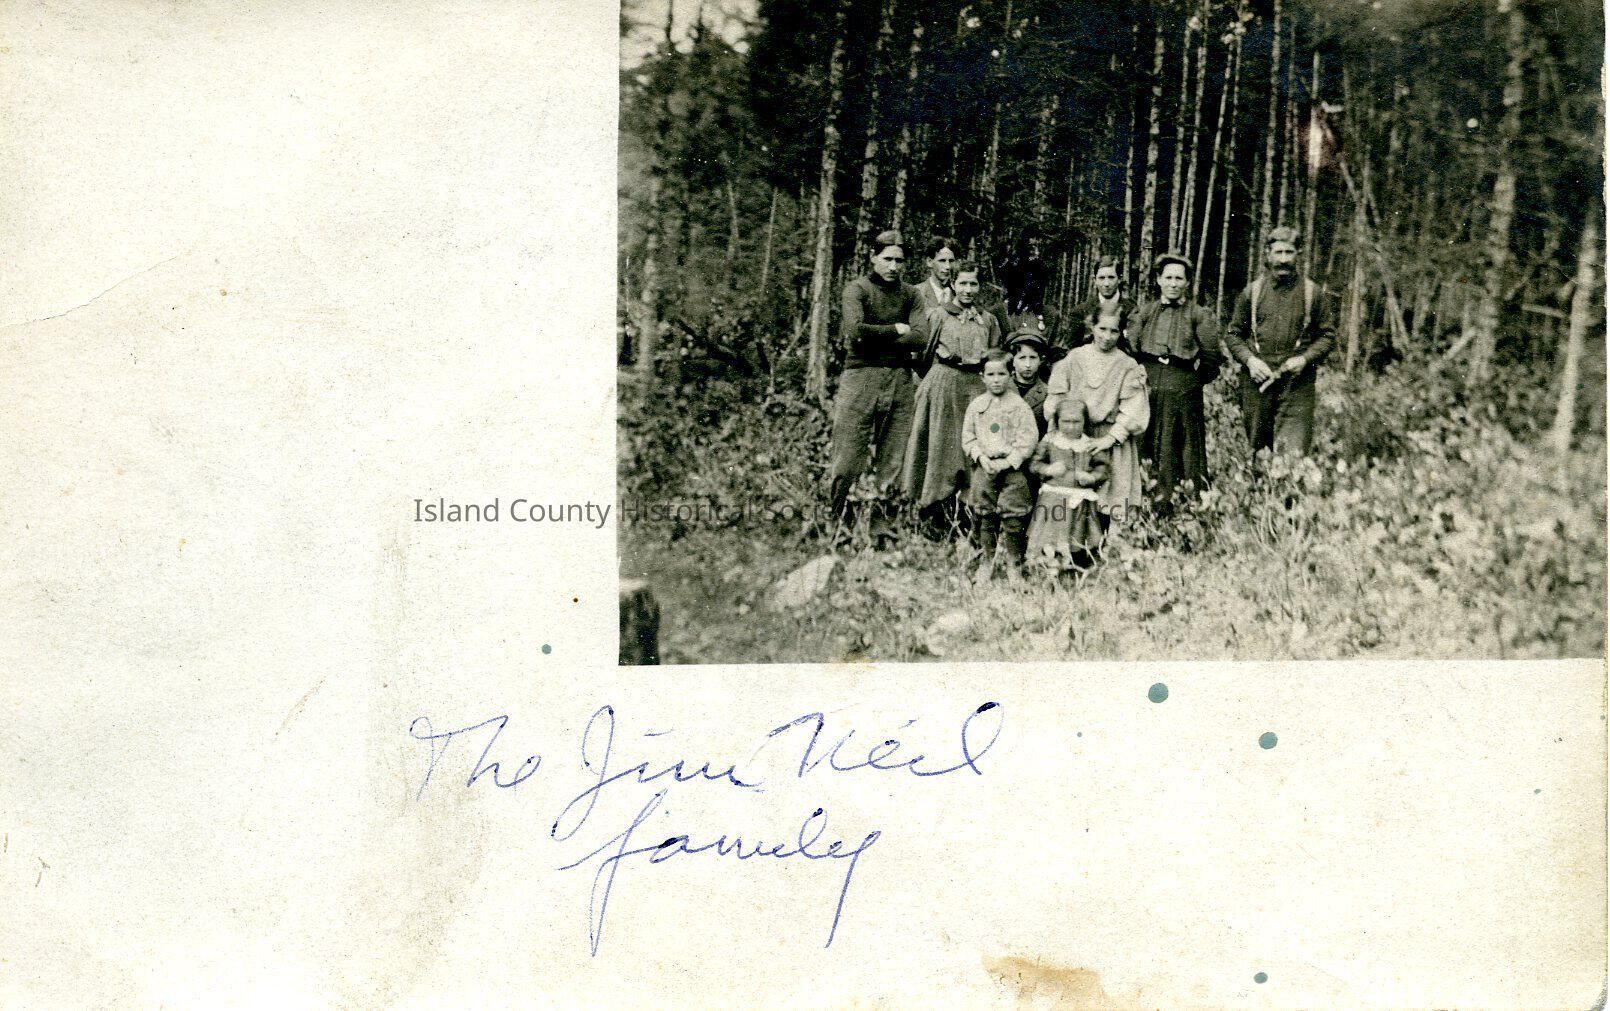 Island County Historical Society Museum and Archives
The Jim Neil
family